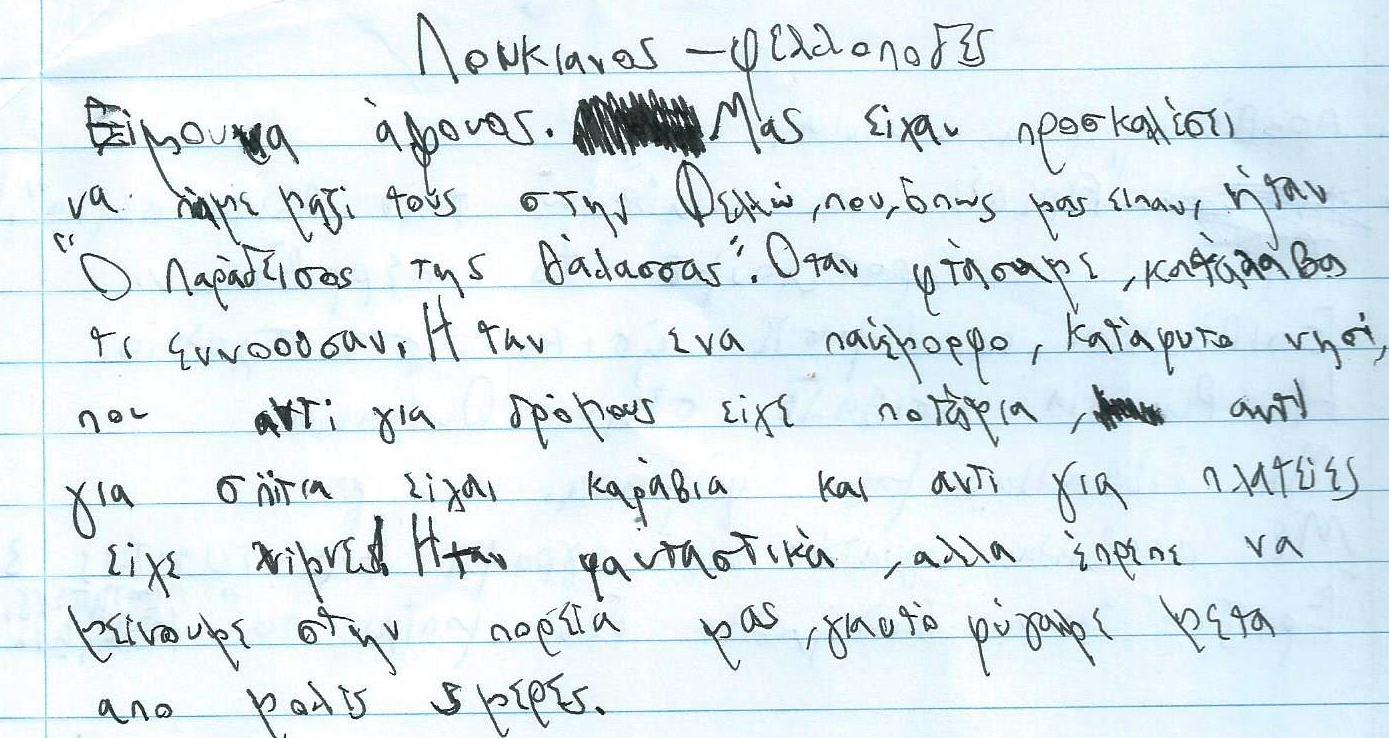 Λουκιανος - φελλοποδες
Είμουνα άφωνος. Μας είχαν προσκαλέσει
να πάμε μαζί τους στην Φελλώ, που, όπως μας είπαν, ήταν
"Ο Παράδεισος της θάλασσας". Όταν φτάσαμε, κατάλαβα
τι εννοούσαν. Ηταν ενα πανέμορφο, κατάφυτο νησί,
που αντι για δρόμους είχε ποτάμια, αντι
για σπίτια είχαι καράβια και αντί για πλατείες
είχε λίμνες! Ηταν φανταστικά, αλλα έπρεπε να
μείνουμε στην πορεία μας, γιαυτό φύγαμε μετα
απο μολις 5 μέρες.